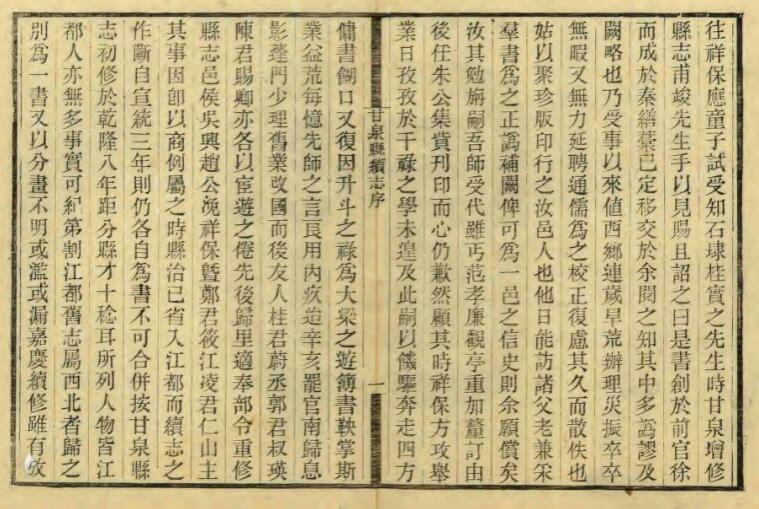 往祥保應童子試受知石埭桂實之先生時甘泉增修
縣志甫峻先生手以見賜且詔之曰是書創於前官徐
而成於秦繕藁已定移交於余閱之知其中多譌謬及
闕略也乃受事以來值西鄉連歲旱荒辦理災振卒卒
無暇又無力延聘通儒爲之校正復慮其久而散佚也
姑以聚珍版印行之汝邑人也他日能訪諸父老兼采
羣書爲之正譌補闕俾可爲一邑之信史則余願償矣
汝其勉旃嗣吾師受代雖丐范孝廉觀亭重加釐訂由
後任朱公集貲刊印而心仍歉然顧其時祥保方攻舉
業日孜孜於干祿之學未遑及此嗣以饑驅奔走四方
甘泉縣續志序
一
傭書餬口又復因升斗之祿爲大梁之遊簿書鞅掌斯
業益荒每憶先師之言長用內疚迨辛亥罷官南歸息
影蓬門少理舊業改國而後友人桂君蔚丞郭君叔瑛
陳君賜卿亦各以宦遊之倦先後歸里適奉部令重修
縣志邑侯吳興趙公浼祥保暨鄭君筱江凌君仁山主
其事因卽以商例屬之時縣治已省入江都而續志之
作斷自宣統三年則仍各自爲書不可合併按甘泉縣
志初修於乾隆八年距分縣才十稔耳所列人物皆江
都人亦無多事實可紀第割江都舊志屬西北者歸之
別爲一書又以分畫不明或濫或漏嘉慶續修雖有攷